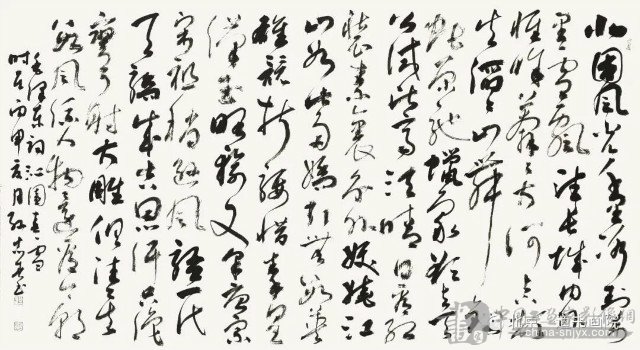 北国风光千里冰封万
里雪飘望长城内外
惟余莽莽大河上下顿
失滔滔山舞
银蛇原驰蜡象欲与天
公试比高须晴日看红
装素裹分外妖娆江
山如此多娇引无数英
雄竞折腰惜秦皇
汉武略输文采唐宗
宋祖稍逊风骚一代
天骄成吉思汗只识
弯弓射大雕俱往矣
数风流人物还看今朝
毛泽东词沁园春雪
时在丙申月书